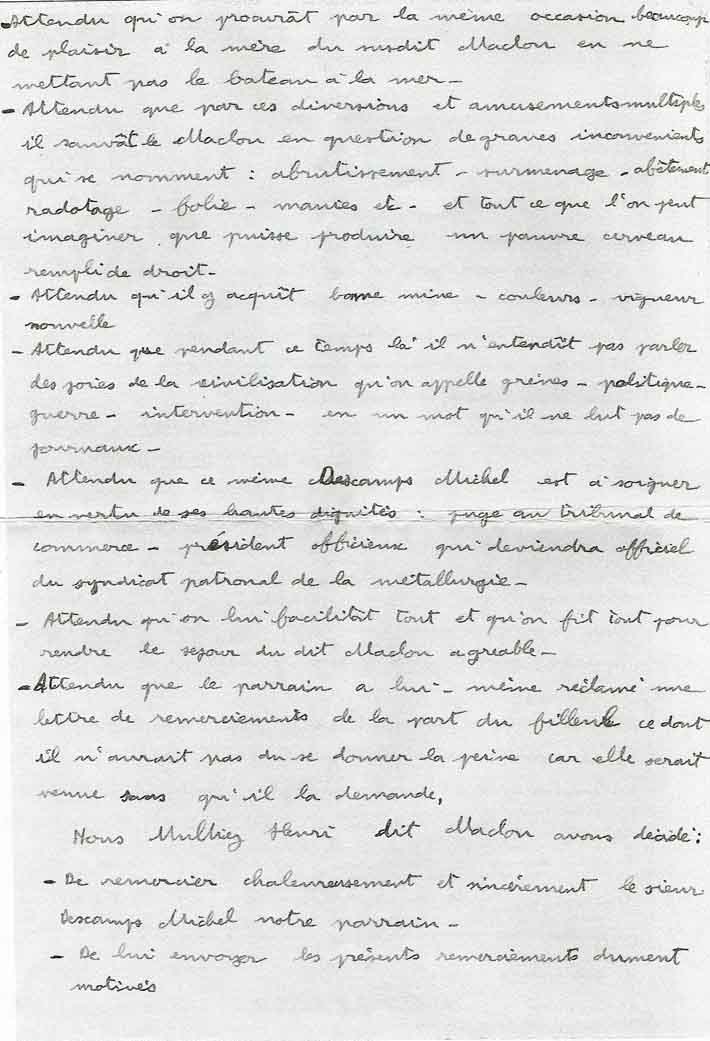 - Attendu qu'on procurât par la même occasion beaucoup
de plaisir à la mère du susdit Maclou en ne
mettant pas le bateau à la mer -
- Attendu que par ces diversions et amusements multiples
il sauvât le Maclou en question de graves inconvenients
qui se nomment : abrutissement - surmenage - abêtement
radotage - folie - manies etc - et tout ce que l'on peut
imaginer que puisse produire un pauvre cerveau
rempli de droit -
- Attendu qu'il y acquît bonne mine - couleurs - vigueur
nouvelle
- Attendu que pendant ce temps là il n'entendît pas parler
des joies de la civilisation qu'on appelle grèves - politique -
guerre - intervention - en un mot qu'il ne lut pas de
journaux -
- Attendu que ce même Descamps Michel est à soigner
en vertu de ses hautes dignités : juge au tribunal de
commerce - président officieux qui deviendra officiel
du syndicat patronal de la métallurgie -
- Attendu qu'on lui facilitât tout et qu'on fit tout pour
rendre le sejour du dit Maclou agréable -
- Attendu que le parrain a lui - même réclamé une
lettre de remerciements de la part du filleul ce dont
il n'aurait pas du se donner la peine car elle serait
venue sans qu'il la demande,
Nous Mulliez Henri dit Maclou avons décidé :
- De remercier chaleureusement et sincèrement le sieur
Descamps Michel notre parrain -
- De lui envoyer les présents remerciements dument
motivés